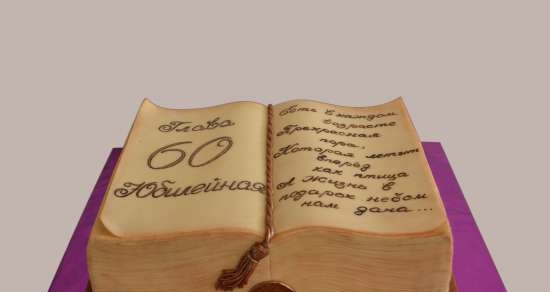 Глава
60
Юбилейная
Есть в каждом
возрасте
Прекрасная
пора:
Которая летит
вперёд
как птица
А Жизнь в
подарок небом
нам дана...